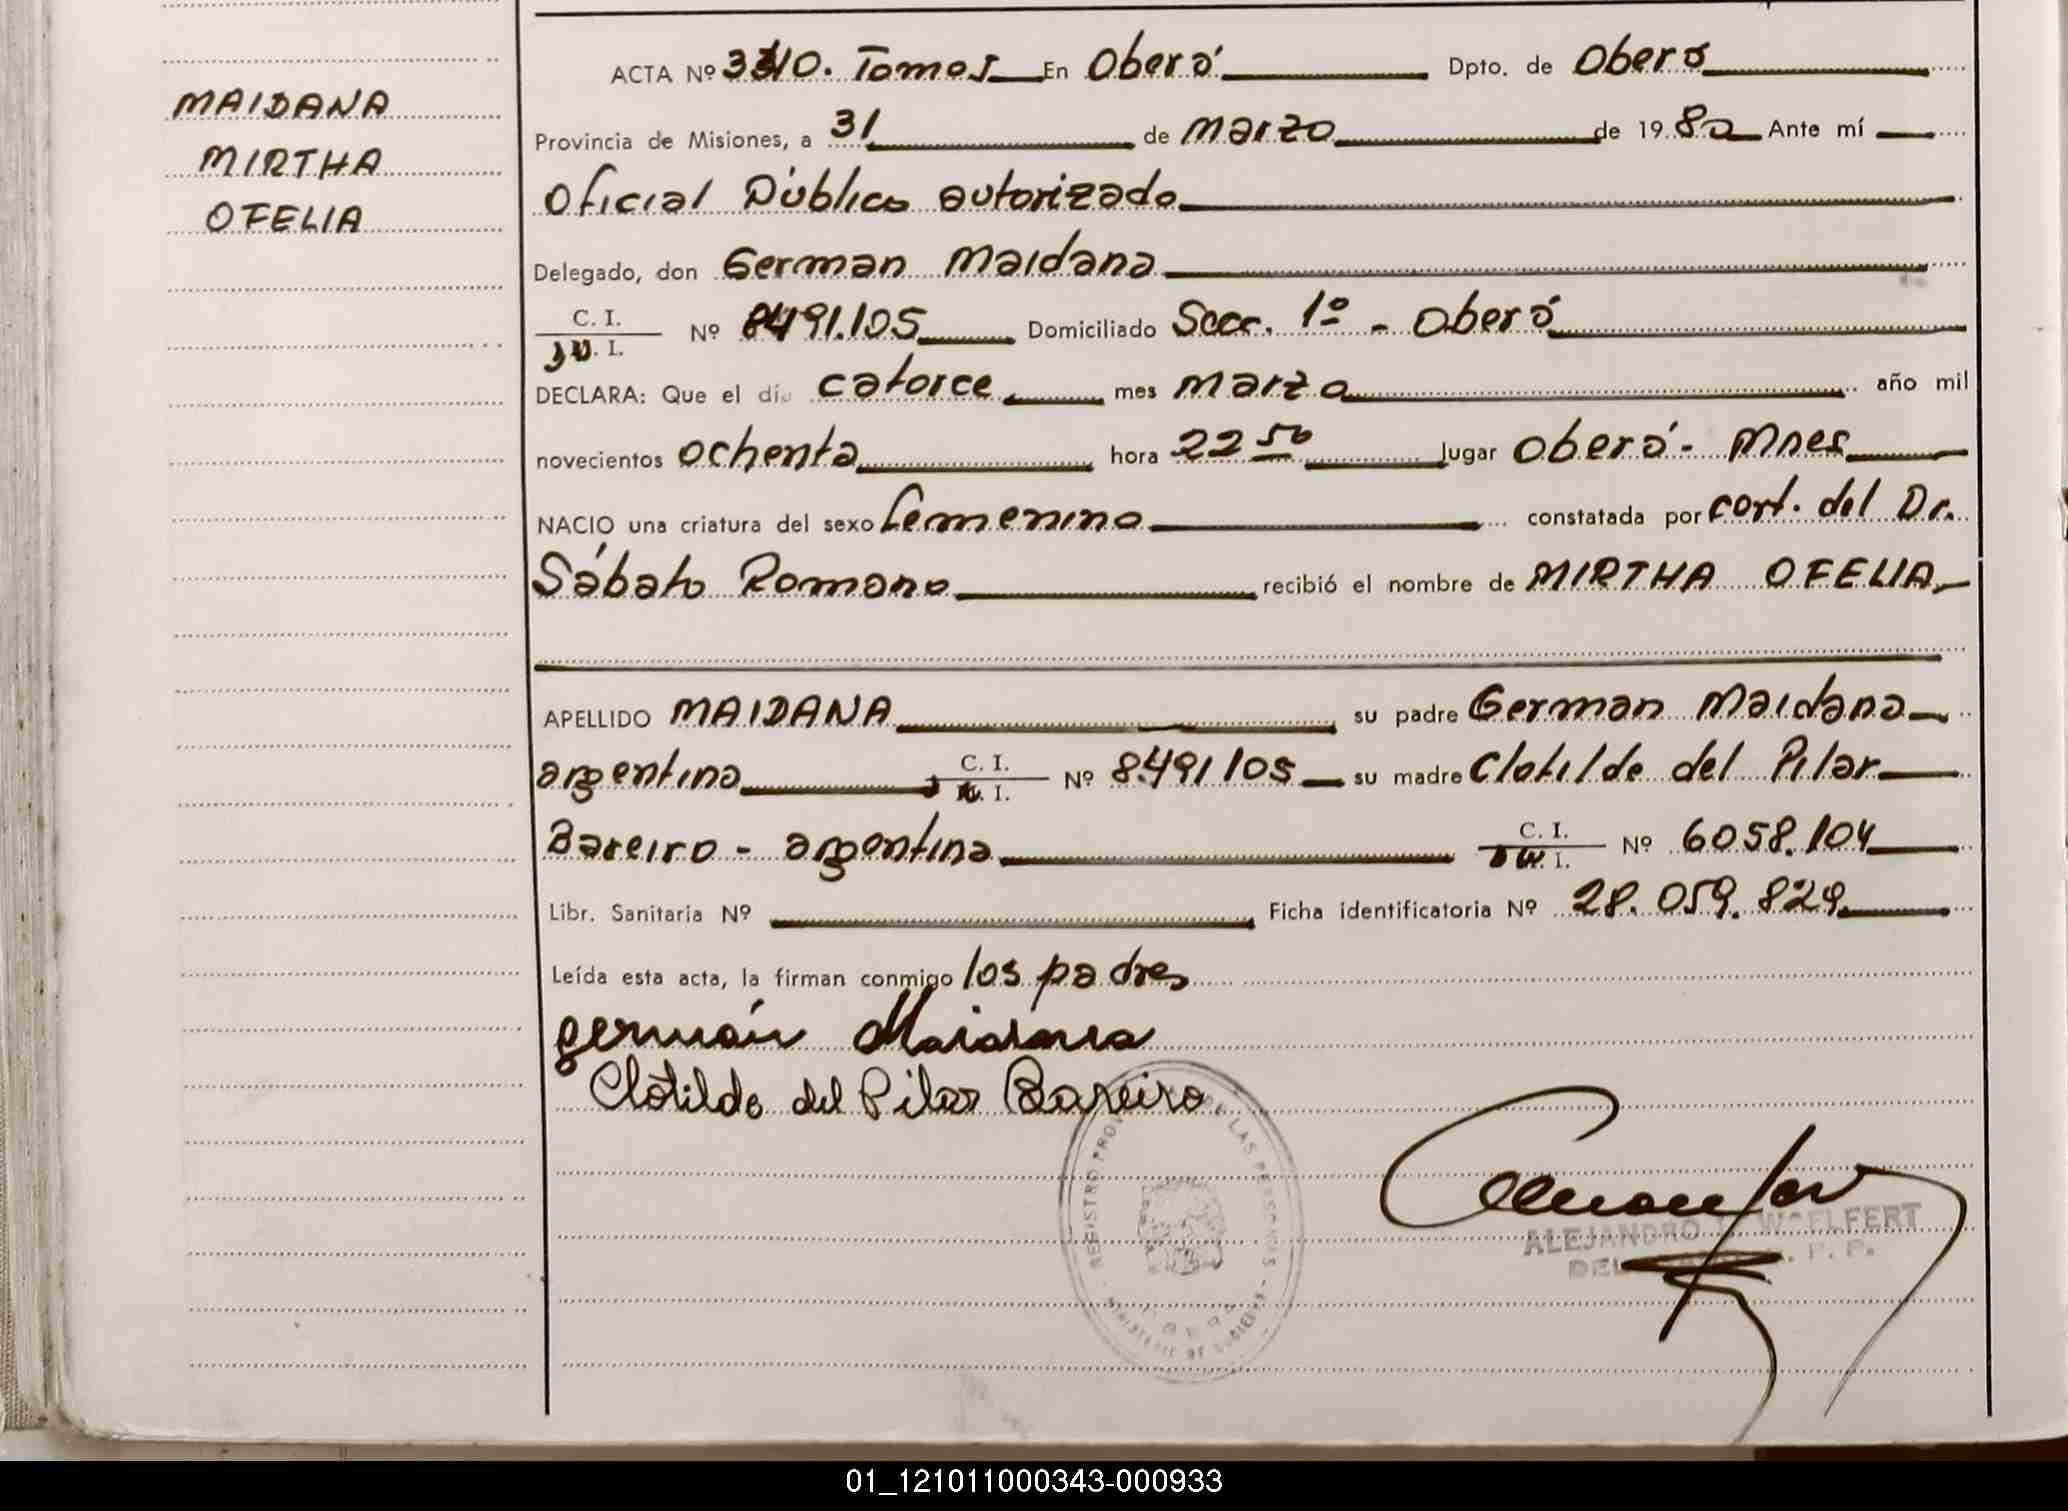 MAIDANA
MIRTHA
OFELIA
ACTA Nº 3310. Tomos En Oberá Dpto. de Oberá
Provincia de Misiones, a 31 de marzo de 1980 Ante mí
Oficial Público autorizado
Delegado, don German Maidana
C. I. Nº 8491.105 Domiciliado Secc. 1º - Oberá
DECLARA: Que el día catorce mes marzo año mil
novecientos ochenta hora 22 50 lugar Oberá - Mnes
NACIO una criatura del sexo femenino constatada por cert. del Dr.
Sábato Romano recibió el nombre de MIRTHA OFELIA
APELLIDO MAIDANA su padre German Maidana
argentino C. I. Nº 8.491.105 su madre Clotilde del Pilar
Bareiro - argentina C. I. Nº 6058.104
Libr. Sanitaria Nº Ficha identificatoria Nº 28.059.829
Leída esta acta, la firman conmigo los padres
germán Maidana
Clotilde del Pilar Bareiro
REGISTRO PROV DE LAS PERSONAS
MINISTERIO DE GOBIERNO
ALEJANDRO WOELFERT
01_121011000343-000933